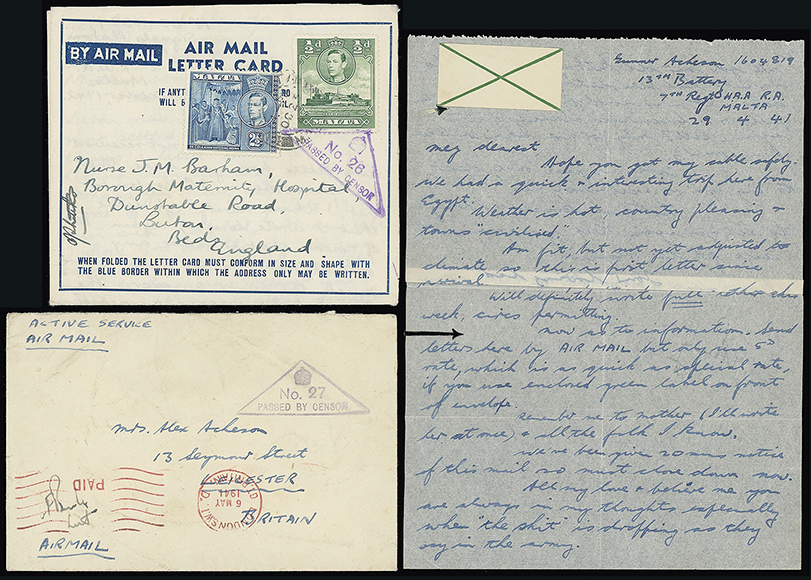 BY AIR MAIL
AIR MAIL
LETTER CARD
IF ANYT
RD
WILL B
MALTA
2½D
½D ½D
MALTA
No. 26
PASSED BY CENSOR
Nurse J. M. Barham,
Borough Maternity Hospital,
Dunstable Road,
Luton,
Beds
England
WHEN FOLDED THE LETTER CARD MUST CONFORM IN SIZE AND SHAPE WITH
THE BLUE BORDER WITHIN WHICH THE ADDRESS ONLY MAY BE WRITTEN.
ACTIVE SERVICE
AIR MAIL
No. 27
PASSED BY CENSOR
Mrs. Alex Acheson
13 Seymour Street
LEICESTER
BRITAIN
PAID
LONDON S.W.1
6 MAY
1941
AIRMAIL
Gunner Acheson 1604819
13TH Battery
7TH Regt HAA R.A.
MALTA
29 4 41
My dearest
Hope you got my cable safely.
We had a quick + interesting trip here from
Egypt.
Weather is hot, country pleasing +
towns "civilised".
Am fit, but not yet adjusted to
climate so this is first letter since
arrival.
Will definitely write full letter this
week, circs permitting.
Now as to information. Send
letters here by AIR MAIL but only use 5D
rate, which is as quick as special rate,
if you use enclosed green label on front
of envelope.
Remember me to mother (I'll write
her at once) + all the folk I know.
We've been given 20 mins notice
of this mail so must close down now.
All my love + believe me you
are always in my thoughts especially
when the shit is dropping as they
say in the army.